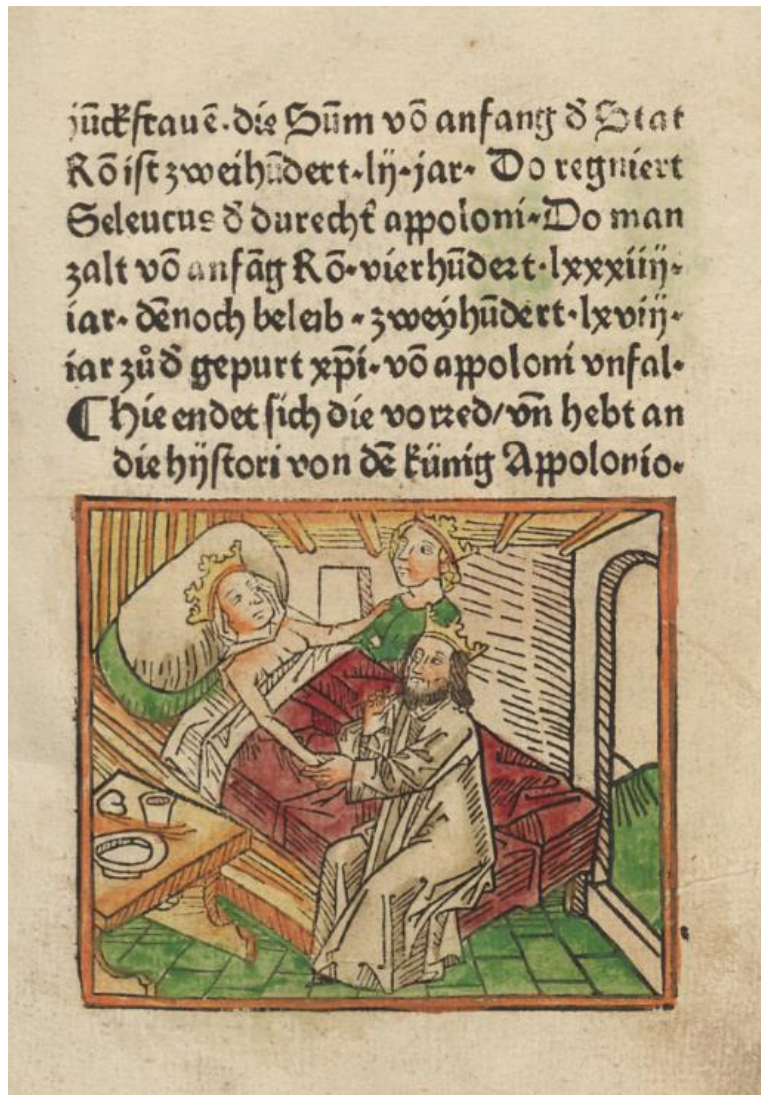 jūckfrauē. die Sūm vō anfang đ Stat
Rō ist zweihūdert. lij. jar. Do regniert
Seleucus đ durecht͛ appoloni. Do man
zalt vō anfāg Rō. vierhūdert. lxxxiiij.
iar. dēnoch beleib. zweÿhūdert. lxviij.
iar zůđ gepurt xp̄i. vō appoloni vnfal.
¶ hie endet sich die vorred/ vn̄ hebt an
die hÿstori von dē künig Appolonio.